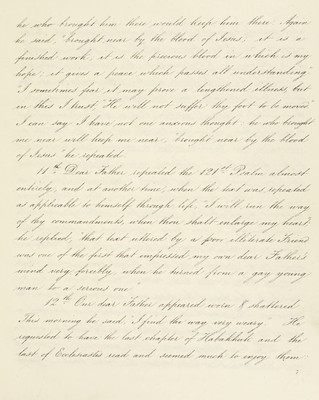 he who brought him there would keep him there. Again
he said, "brought near by the blood of Jesus, it is a
finished work, it is the precious blood in which is my
hope; it gives a peace which passes all understanding"
"I sometimes fear it may prove a lengthened illness, but
in this I trust, "He will not suffer thy foot to be moved"
I can say I have not one anxious thought: he who brought
me near will keep me near; "brought near by the blood
of Jesus" he repeated.
11th. Dear Father repeated the 121st Psalm almost
entirely, and at another time, when the text was repeated
as applicable to himself through life, "I will run the way
of thy commandments, when thou shalt enlarge my heart,"
he replied, "that text uttered by a poor illiterate Friend
was one of the first that impressed my own dear Father's
mind very forcibly, when he turned from a gay young
man to a serious one."
12th. Our dear Father appeared worn & shattered.
This morning he said, "I find the way very weary." He
requested to have the last chapter of Habakkuk and the
last of Ecclesiastes read and seemed much to enjoy them